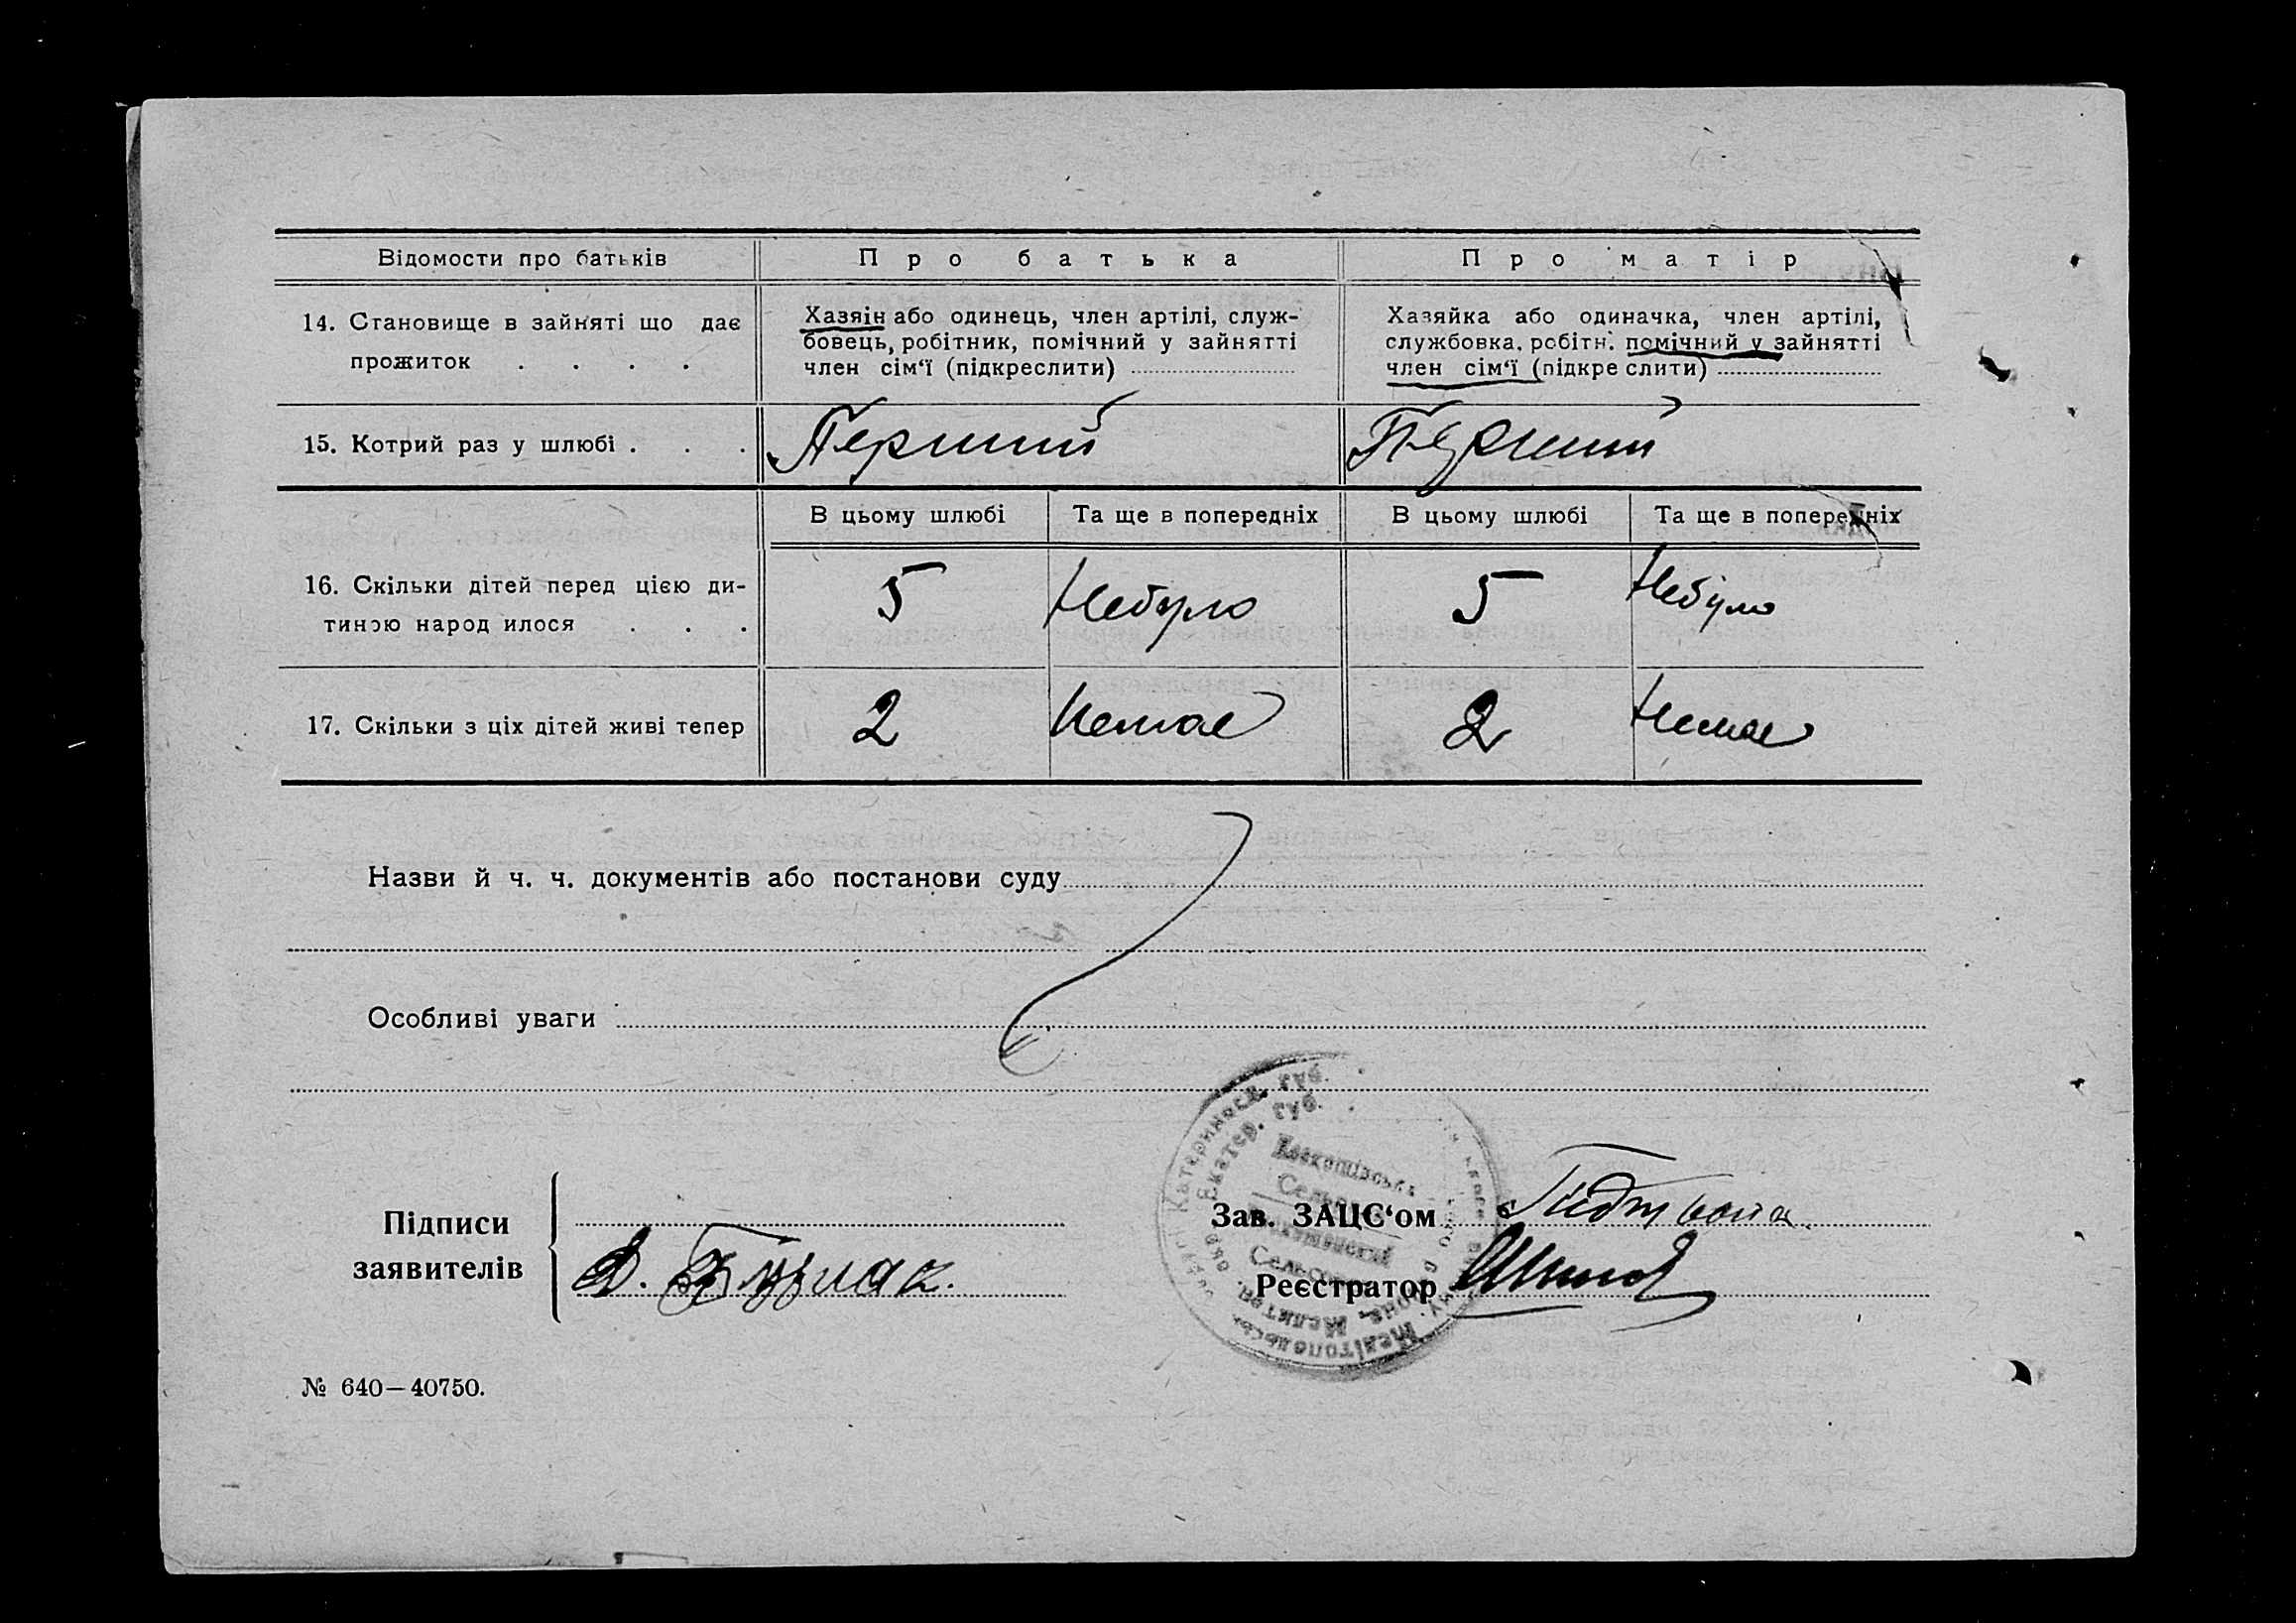 Відомости про батьків
Про батька
Про матір
14. Становище в зайняті що дає
прожиток . . . .
Хазяін або одинець, член артілі, служ-
бовець, робітник, помічний у зайнятті
член сім‘ї (підкреслити)
Хазяйка або одиначка, член артілі,
службовка, робітн. помічний у зайнятті
член сім‘ї (підкре слити)
15. Котрий раз у шлюбі . . .
Перший
Перший
В цьому шлюбі
Та ще в попередніх
В цьому шлюбі
Та ще в попередніх
16. Скільки дітей перед цією ди-
тиною народ илося . . .
5
Небуло
5
Небуло
17. Скільки з ціх дітей живі тепер
2
Немае
2
Немае
Назви й ч. ч. документів або постанови суду
Особливі уваги
Катеринosл. губ.
Екатер. губ.
Підписи
заявителів
Зав. ЗАЦС‘ом
Реєстратор
Мелітопольськ.
№ 640—40750.